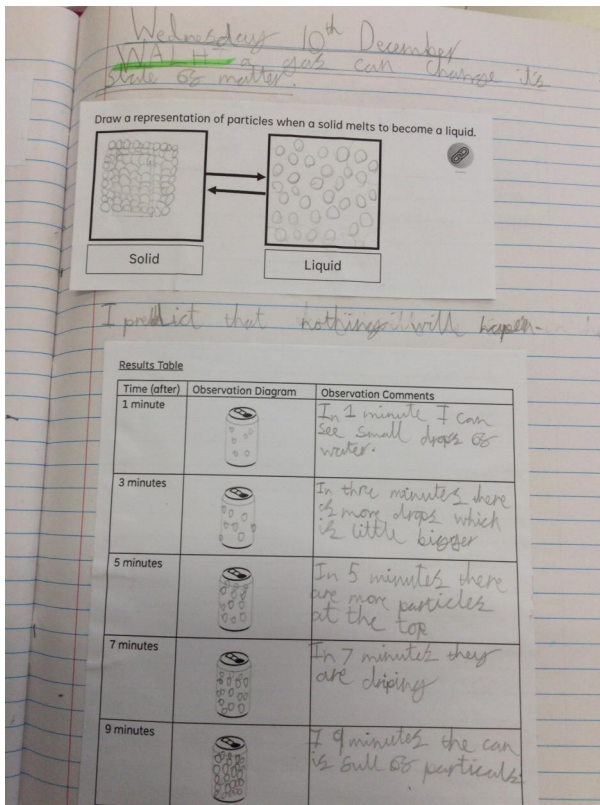 Wednesday 10th December
WALH a gas can change it's
state of matter.
Draw a representation of particles when a solid melts to become a liquid.
Solid
Liquid
I predict that nothing will hapen.
Results Table
Time (after) Observation Diagram Observation Comments
1 minute
In 1 minute I can
see small drops of
water.
3 minutes
In thre minutes there
is more drops which
is little bigger
5 minutes
In 5 minutes there
are more particles
at the top
7 minutes
In 7 minutes they
are driping
9 minutes
9 minutes the can
is full of particuls